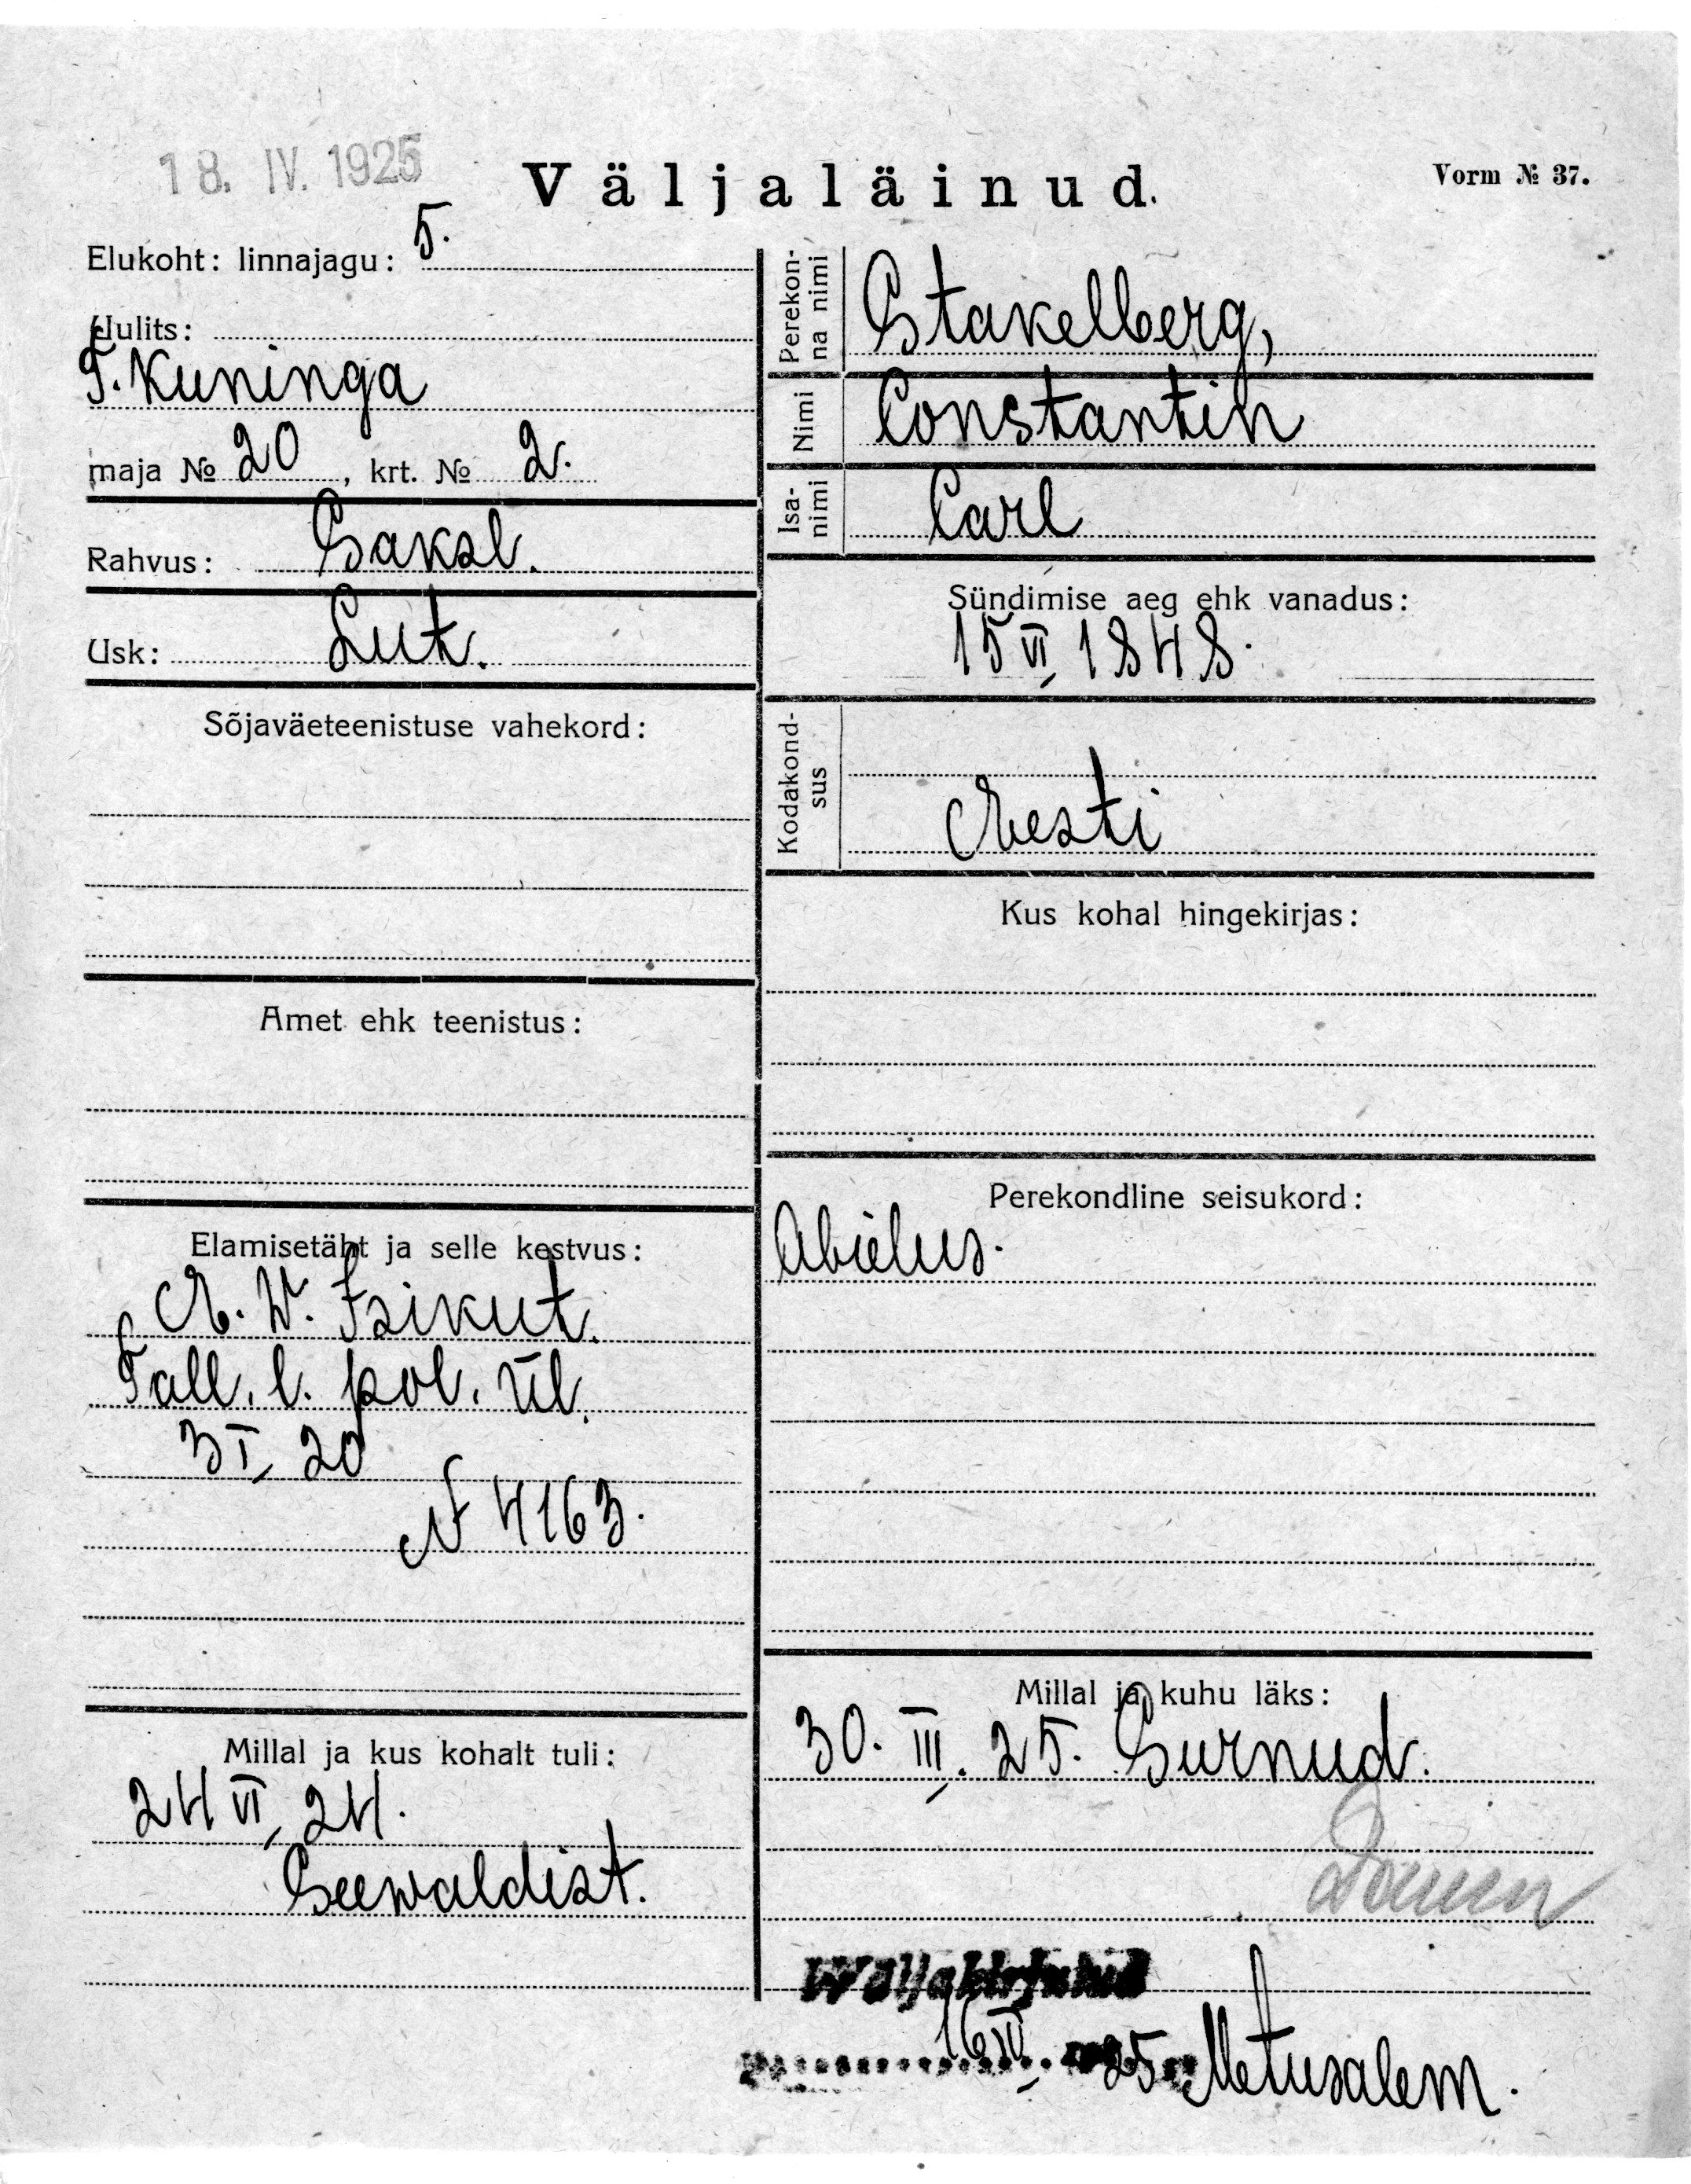 18. IV. 1925
Väljaläinud.
Vorm № 37.
Elukoht: linnajagu: 5.
Uulits:
T. Kuninga
maja № 20, krt. № 2.
Rahvus: Saksl.
Usk: Lut.
Sõjaväeteenistuse vahekord:
Amet ehk teenistus:
Elamisetäht ja selle kestvus:
E. W. Isikut.
Tall. l. pol. ül.
3 I 20
N 4163.
Millal ja kus kohalt tuli:
24 VI 24.
Seewaldist.
Perekonna nimi
Stakelberg,
Nimi
Constantin
Isanimi
Carl
Sündimise aeg ehk vanadus:
15 VI 1848.
Kodakondsus
Eesti
Kus kohal hingekirjas:
Perekondline seisukord:
Abielus.
Millal ja kuhu läks:
30. III. 25. Surnud.
Wäljakirjutud
16 IV 25 Metusalem.